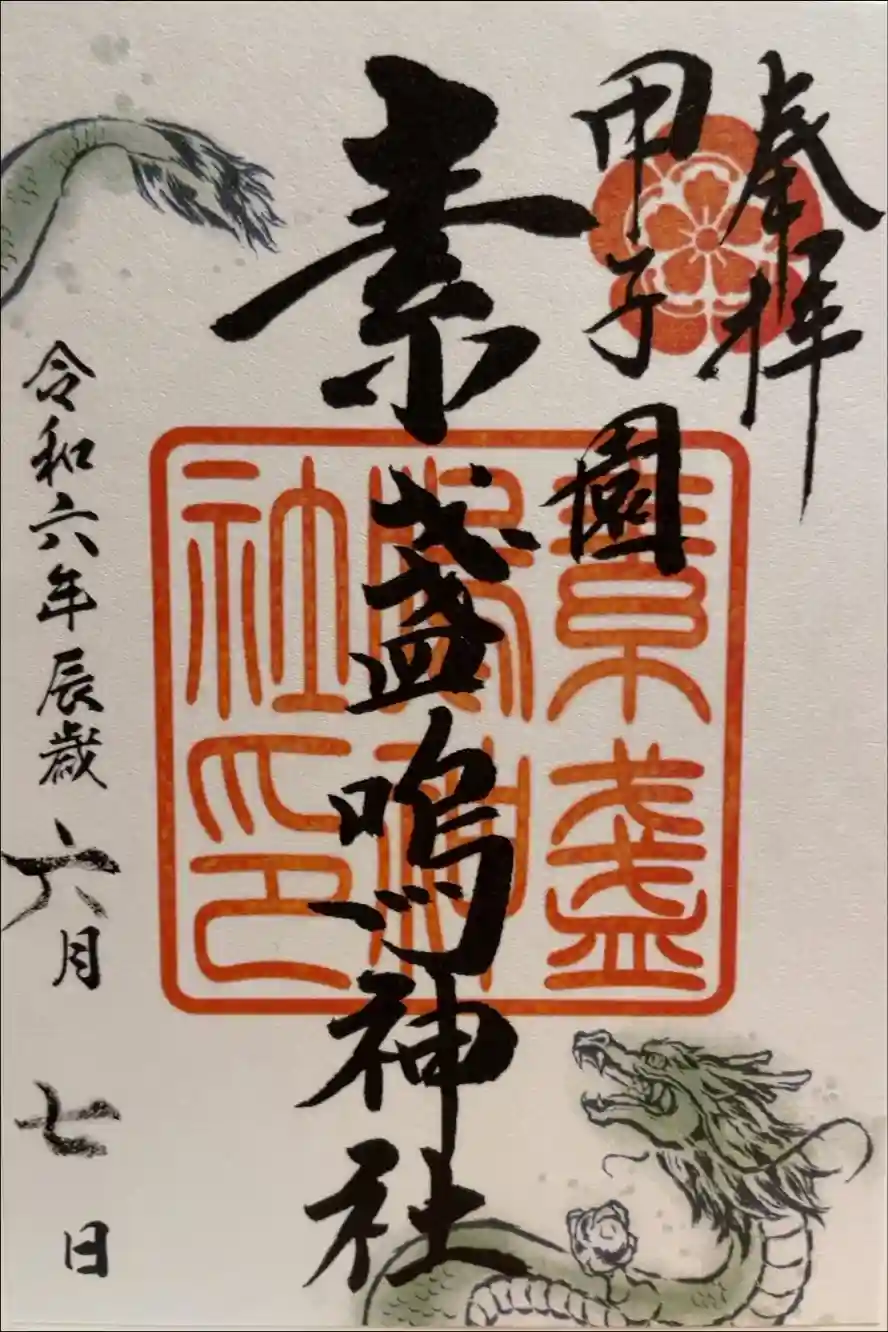 奉拝
甲子園
素盞嗚神社
素盞
嗚神
社印
令和六年辰歳六月七日